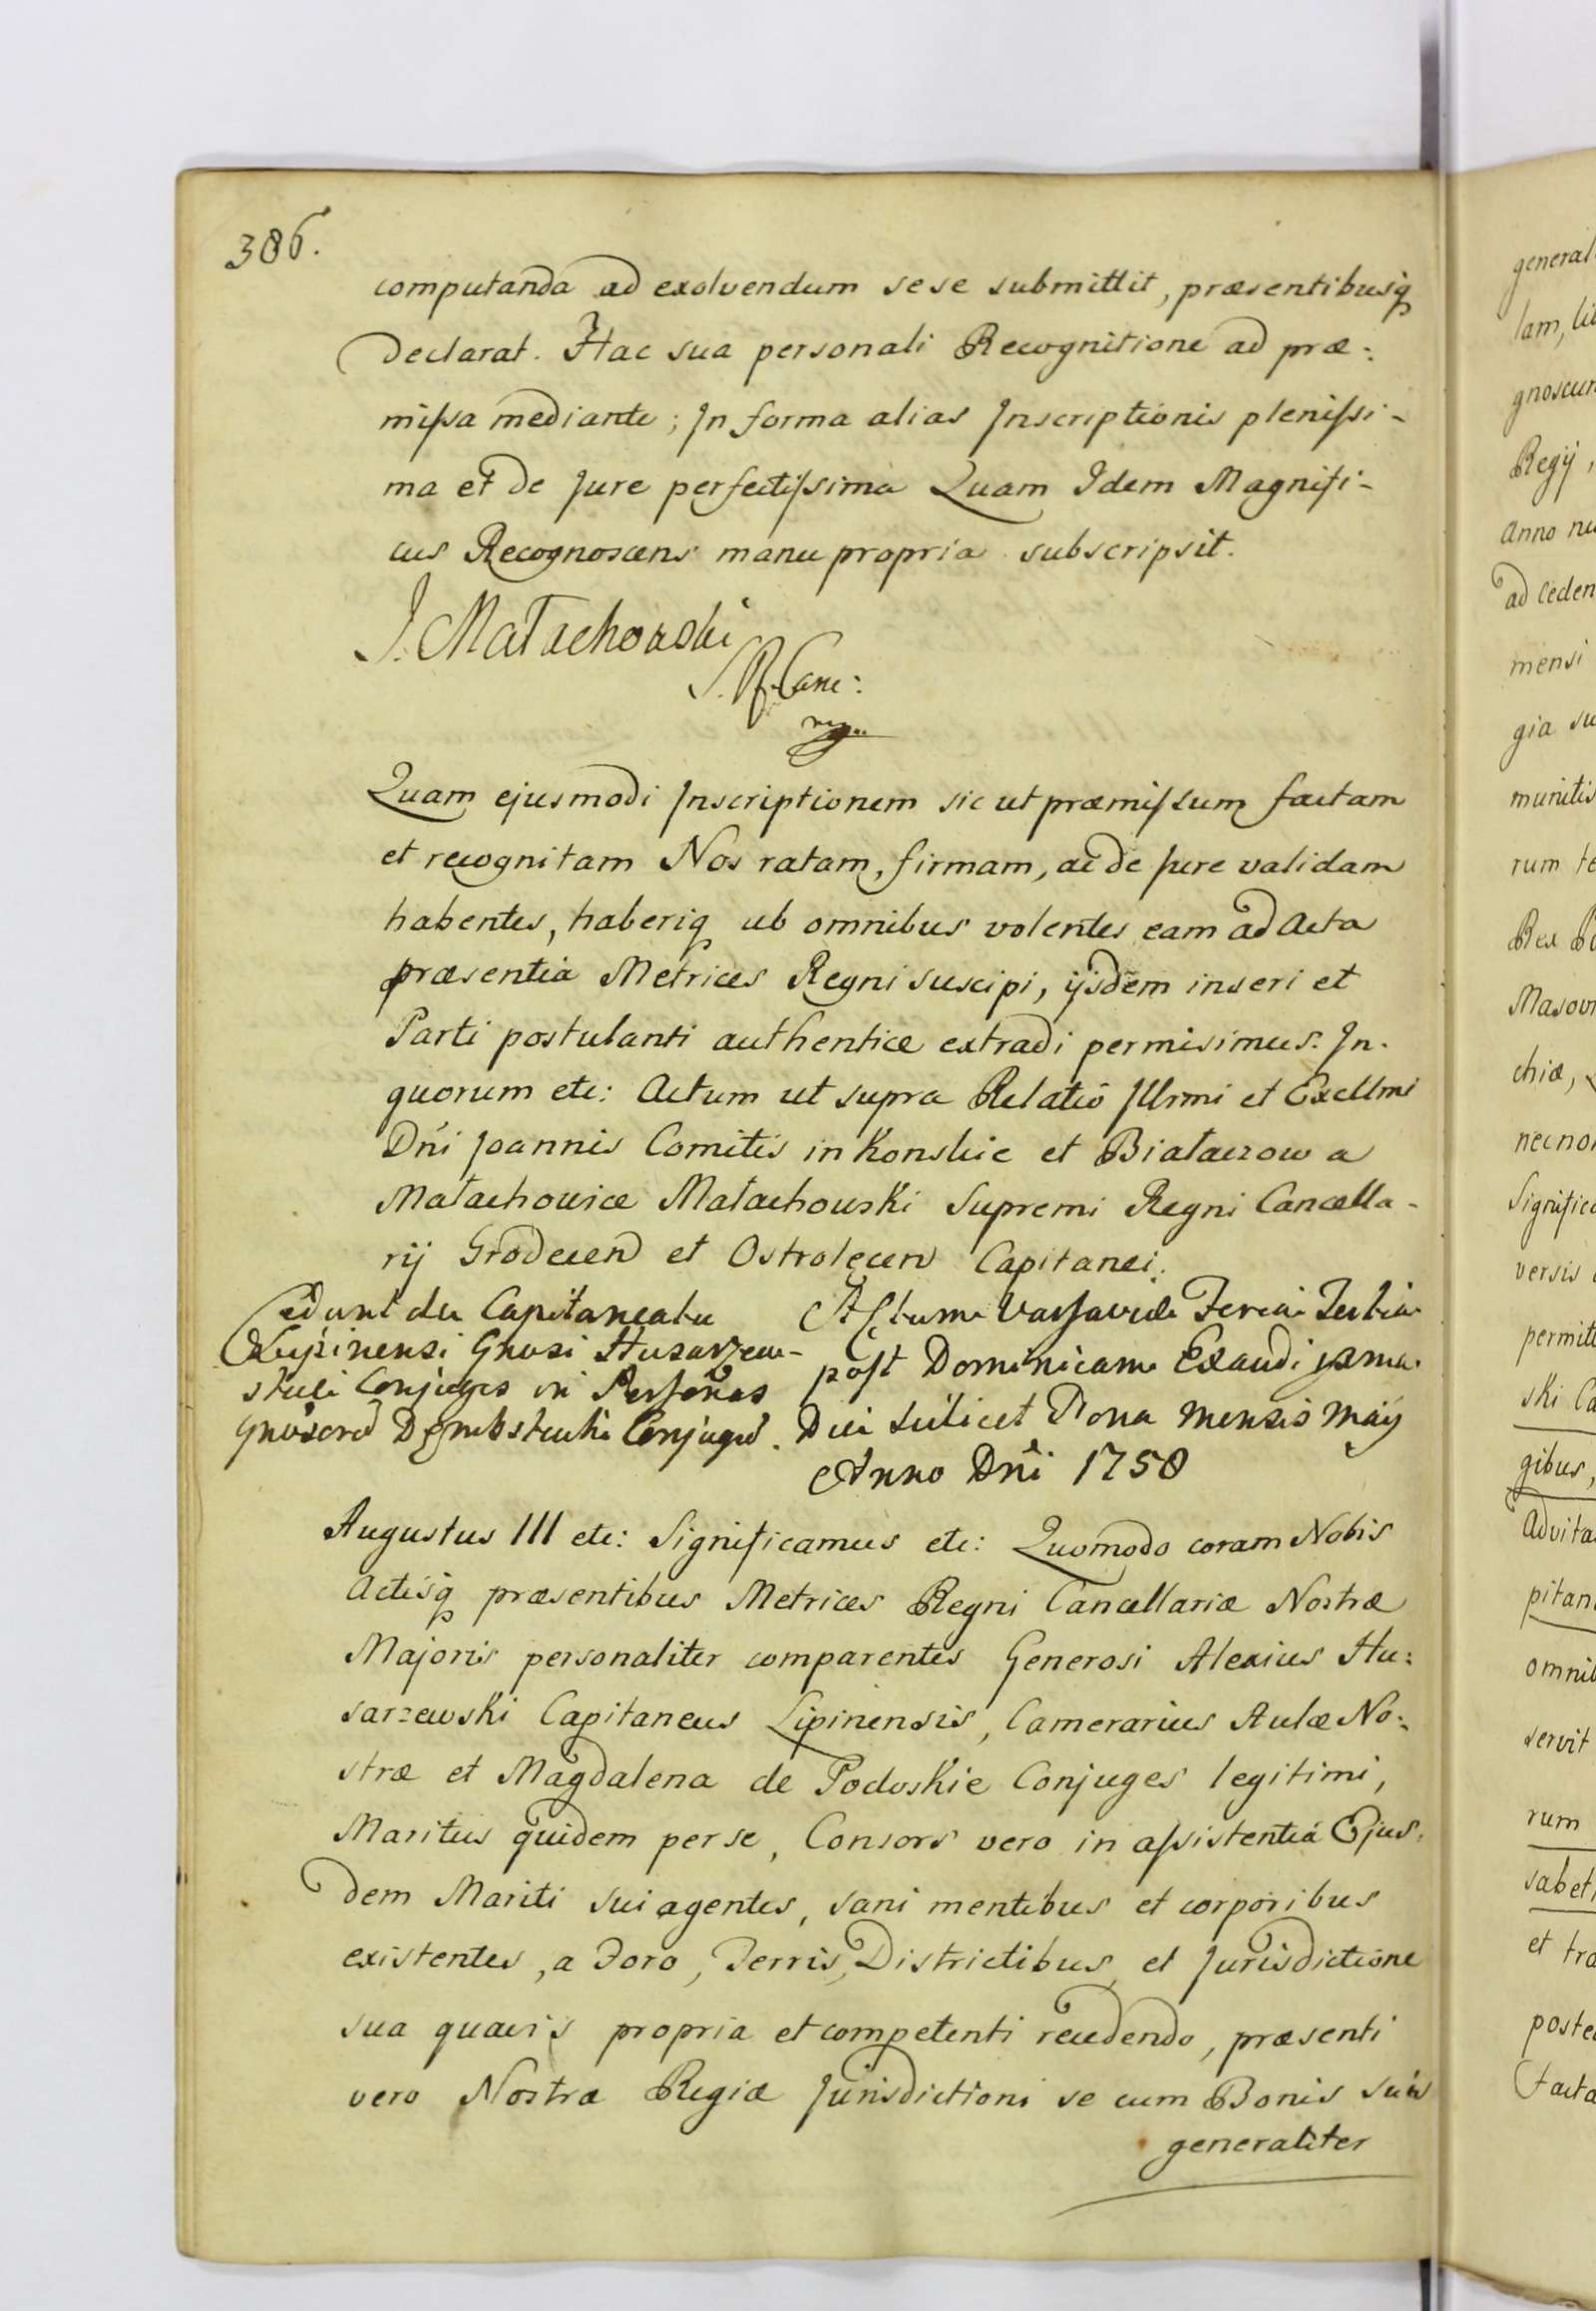 386.
computanda ad exolvendum sese submittit, præsentibusq
declarat. Hac sua personali Recognitione ad præ:
missa mediante; In forma alias Inscriptionis plenissi-
ma et de Jure perfectissima Quam Idem Magnifi-
cus Recognoscens manu propria subscripsit.
J. Małachowski
S. R. Canc:
Quam ejusmodi Inscriptionem sic ut præmissum factam
et recognitam Nos ratam, firmam, ac de Jure validam
habentes, haberiq ab omnibus volentes eam ad Acta
præsentia Metrices Regni suscipi, ijsdem inseri et
Parti postulanti authentice extradi permisimus. In
quorum etc: Actum ut supra Relatio Illrmi et Excllmi
Dni Joannis Comitis in Konskie et Białaczow a
Małachowice Małachowski Supremi Regni Cancella-
rij Grodecen et Ostrolęcen Capitanei.
Cedunt de Capitaneatu
Lipinensi Gnosi Husarzew-
skii Conjuges in Personas
Gnosord Dembskich Conjugd.
Actum Varsaviæ Feria Tertia
post Dominicam Exaudi pxma
Die scilicet Nona Mensis Maij
Anno Dni 1758
Augustus III etc: Significamus etc: Quomodo coram Nobis
Actisq præsentibus Metrices Regni Cancellariæ Nostræ
Majoris personaliter comparentes Generosi Alexius Hu:
sarzewski Capitaneus Lipinensis, Camerarius Aulæ No:
stræ et Magdalena de Podoskie Conjuges legitimi,
Maritus quidem per se, Consors vero in assistentia Ejus:
dem Mariti sui agentes, sani mentibus et corporibus
existentes, a Foro, Terris, Districtibus, et Jurisdictione
sua quavis propria et competenti recedendo, præsenti
vero Nostræ Regiæ Jurisdictioni se cum Bonis suis
generaliter
general
lam,
gnoscun
Regij,
Anno nu
ad ceden
mensi
gia su
munitis
rum te
Rex Po
Masov
chiæ,
necnon
Significa
versis
permitt
ski Ca
gibus,
Advita
pitan
omnib
servit
rum
sabet
et tra
poste
facta